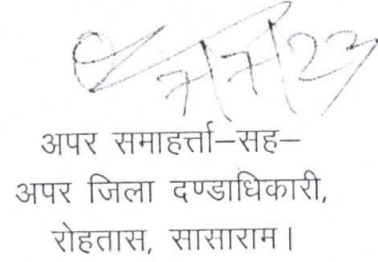 7/7/23
अपर समाहर्त्ता–सह–
अपर जिला दण्डाधिकारी,
रोहतास, सासाराम।